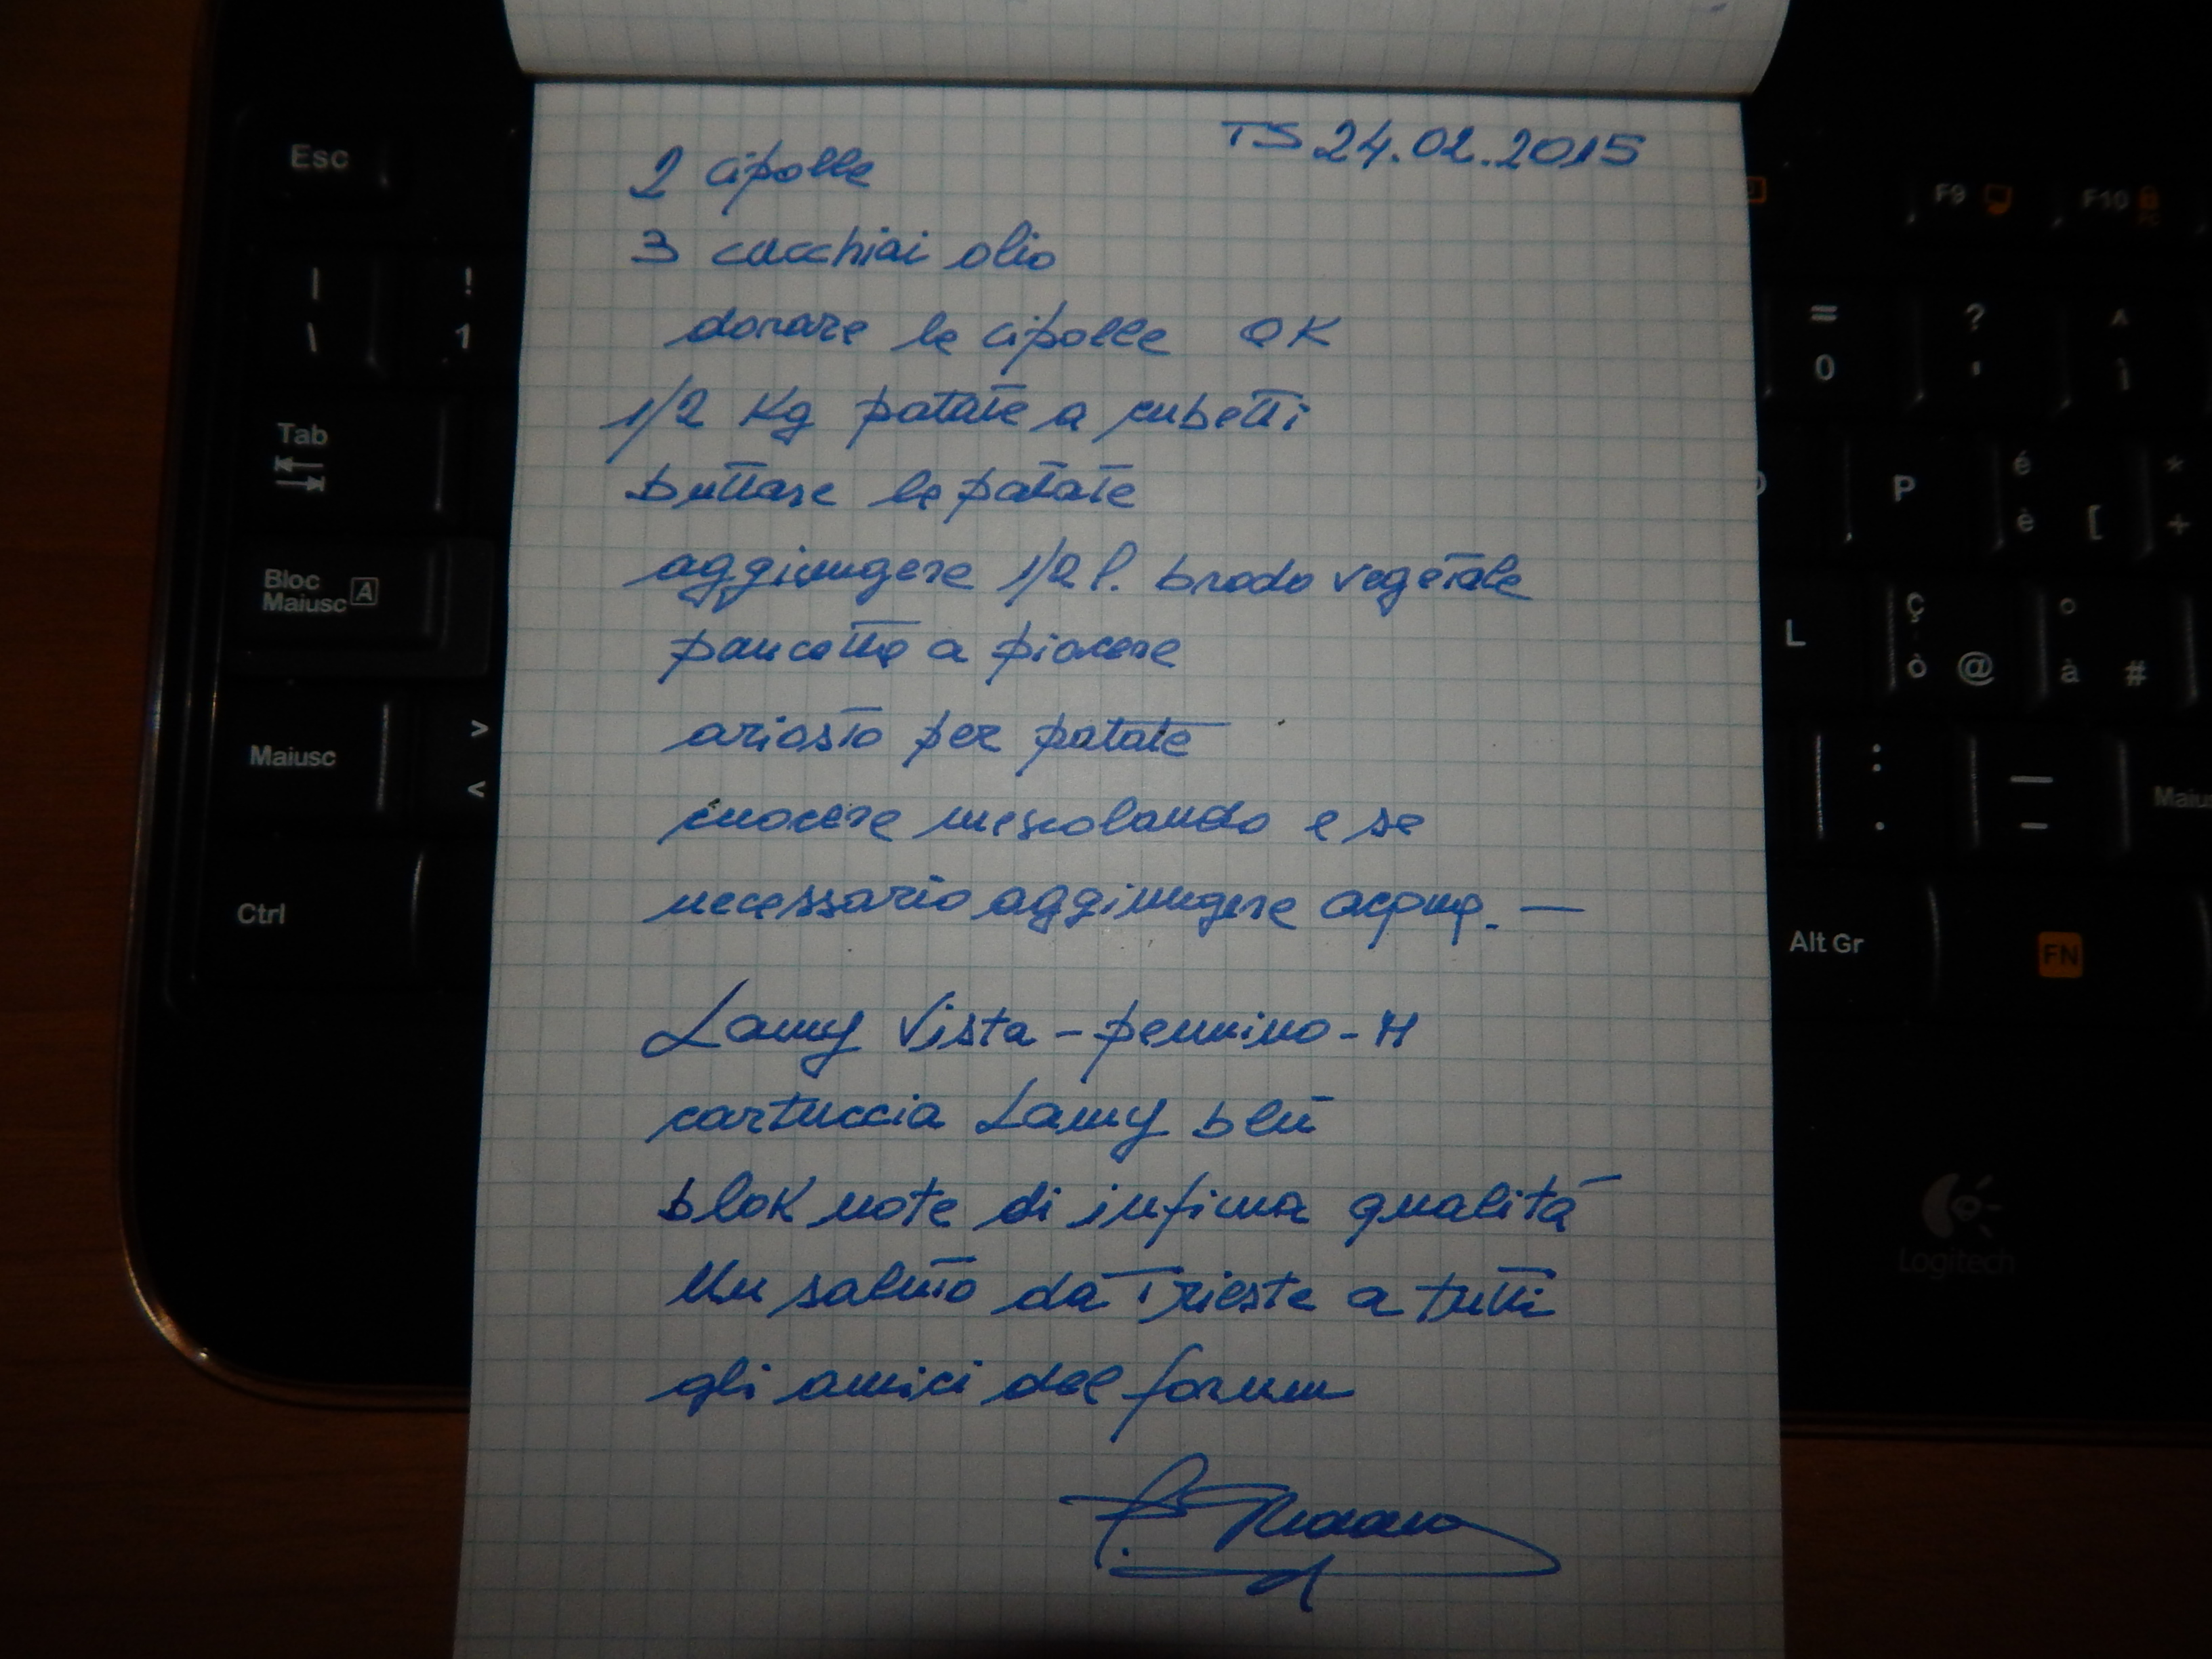 TS 24.02.2015
2 cipolle
3 cucchiai olio
dorare le cipolle OK
1/2 Kg patate a cubetti
buttare le patate
aggiungere 1/2 l. brodo vegetale
pancetta a piacere
ariosto per patate
cuocere mescolando e se
necessario aggiungere acqua. —
Lamy Vista - pennino - M
cartuccia Lamy blu
blok note di infima qualità
Un saluto da Trieste a tutti
gli amici del forum
Esc
F9
F10
|
\
!
1
=
0
?
'
^
ì
Tab
P
é
è [
*
+
Bloc
Maiusc A
L
ç
ò @
°
à #
Maiusc
>
<
:
.
—
–
Ctrl
Alt Gr
FN
Logitech